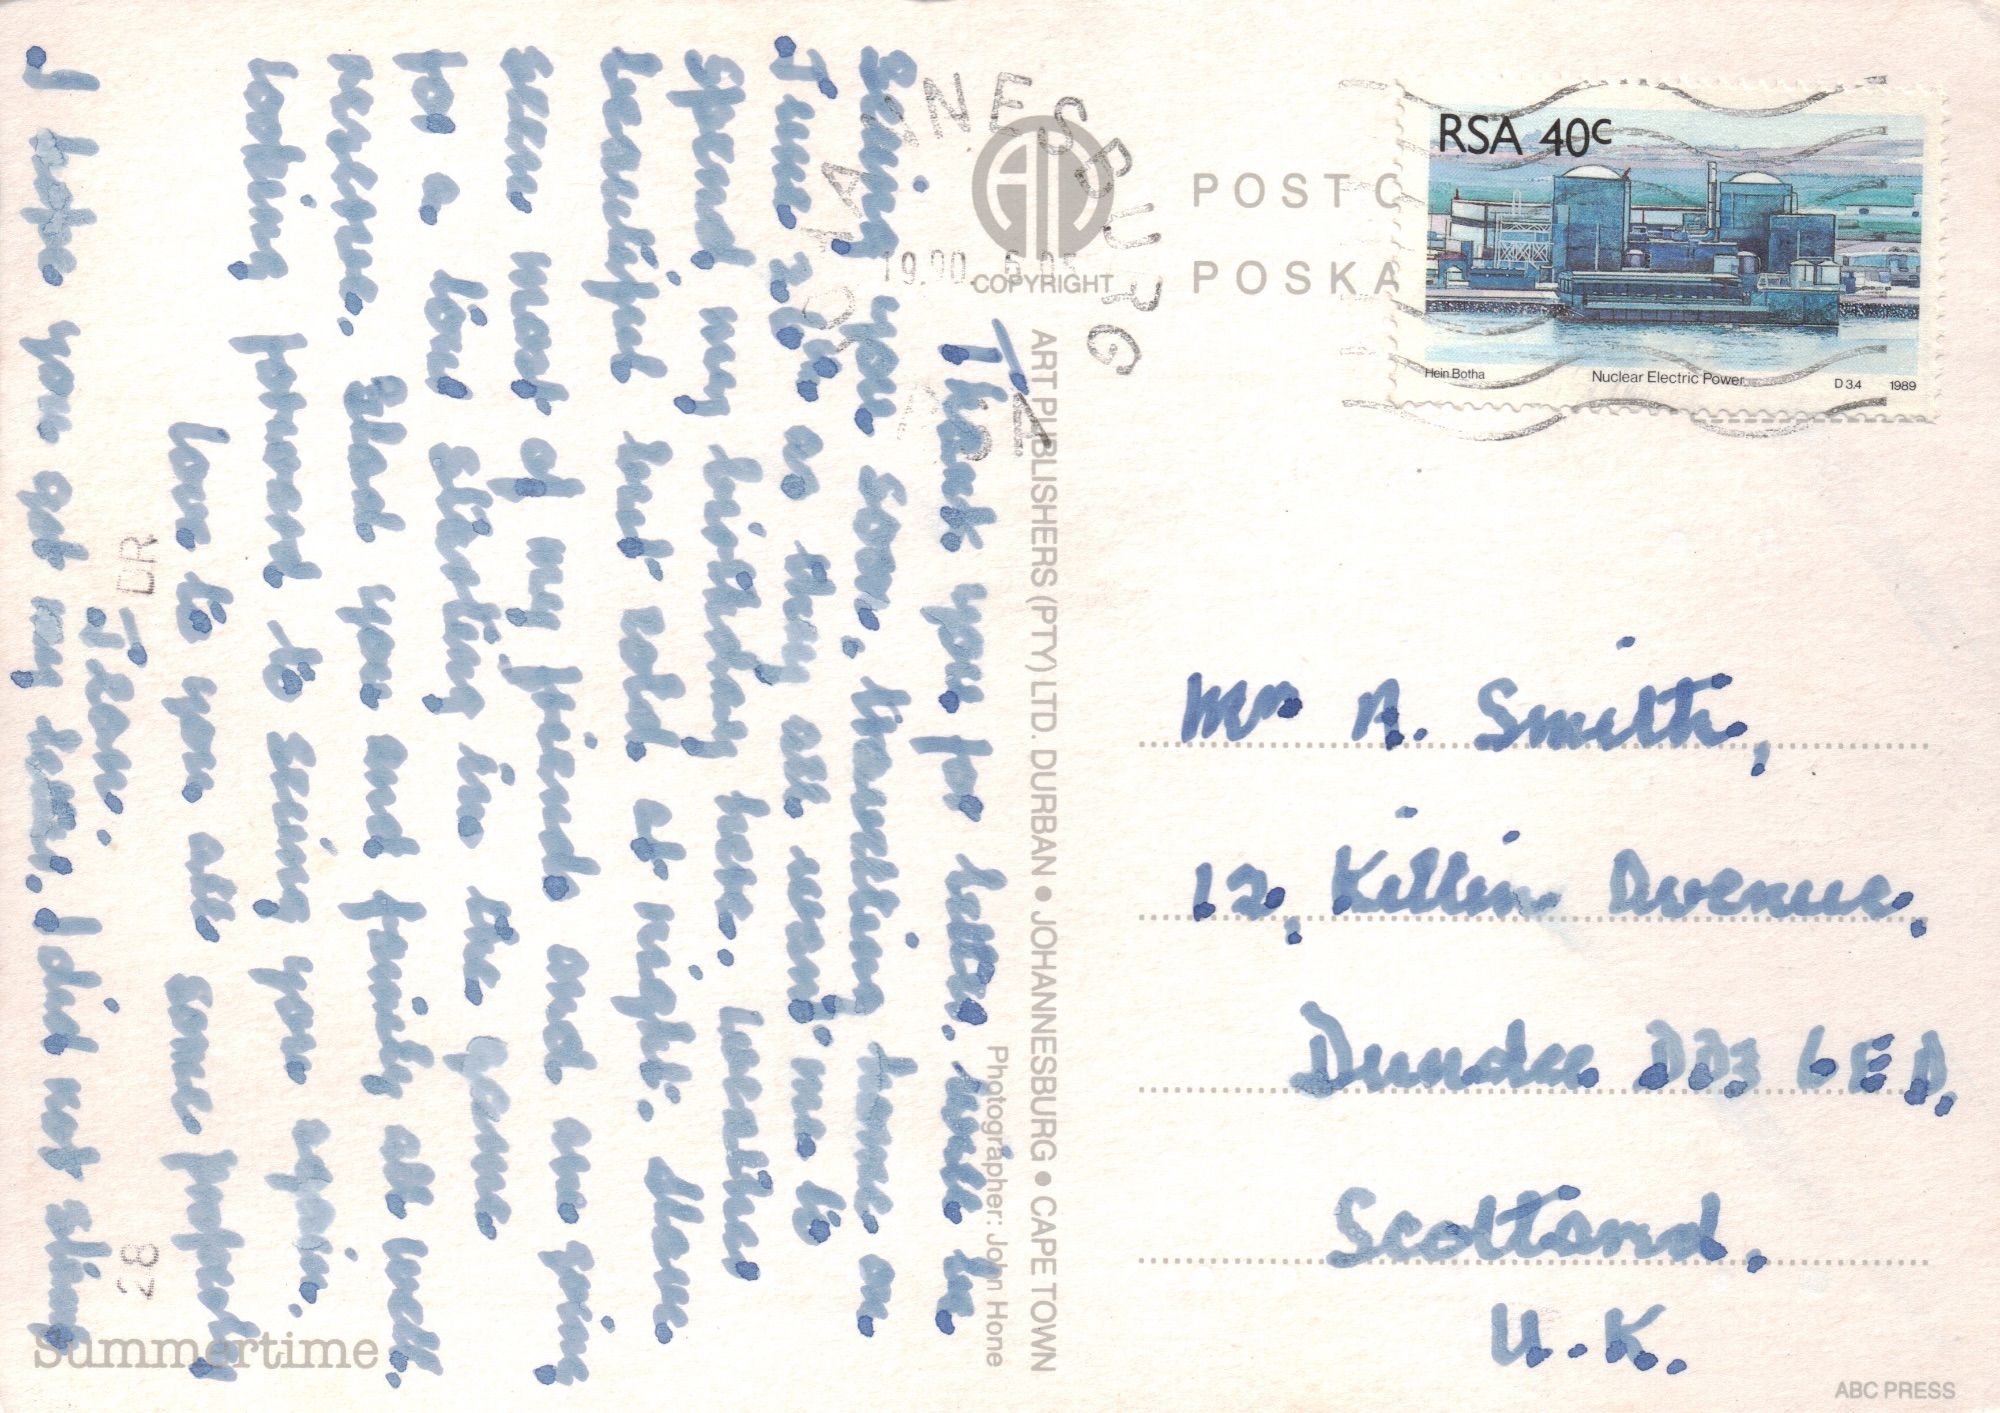 Thank you for letter, will be
Seeing you soon, travelling home on
as they all want me to
Spend my birthday here. Weather
beautiful but cold at night. Have
seen most of my friends and are going
for a tour starting in the game
reserve. Glad you and family all well.
looking forward to seeing you again.
love to you all
Jean.
I hope you got my letter. I did not stamp
some properly
Summertime
DR
28
JOHANNESBURG
19.00
COPYRIGHT
ART PUBLISHERS (PTY) LTD. DURBAN • JOHANNESBURG • CAPE TOWN
Photographer: John Hone
POSTC
POSKA
RSA 40c
Hein Botha
Nuclear Electric Power
D 3.4 1989
Mrs A. Smith,
12, Killin Avenue,
Dundee DD3 6ED,
Scotland,
U.K.
ABC PRESS